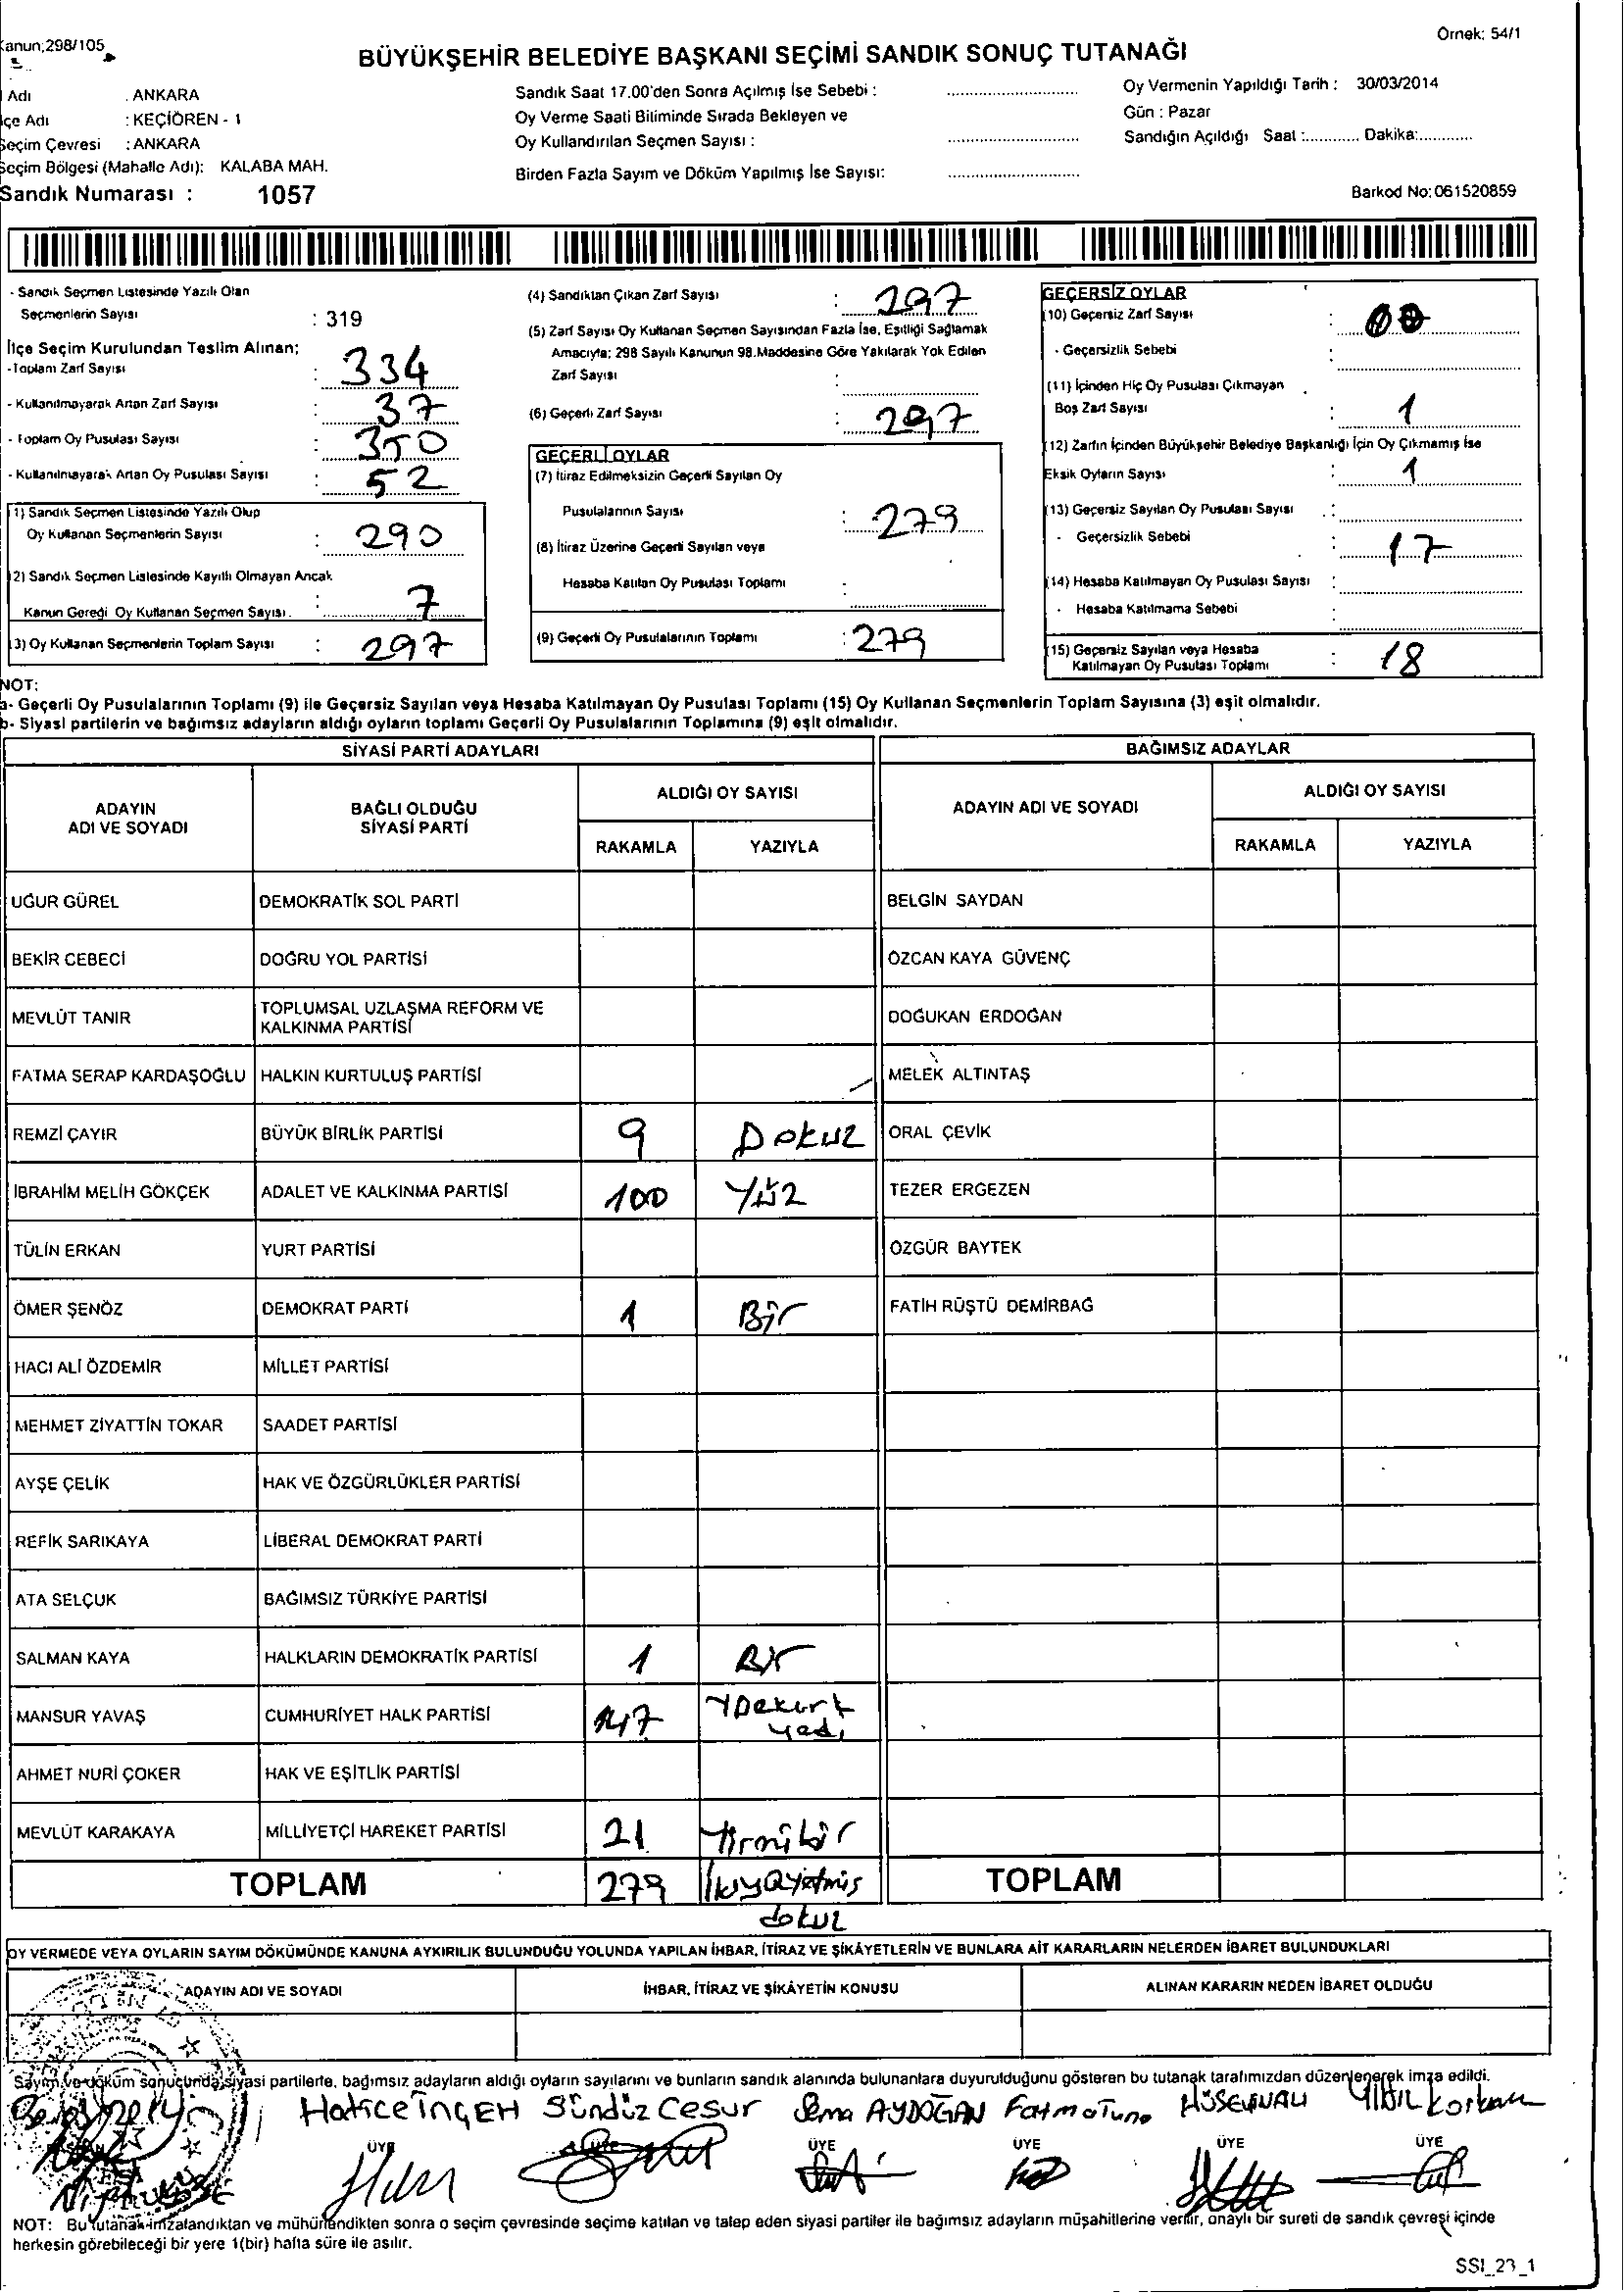 Kanun;298/105
Örnek: 54/1
BÜYÜKŞEHİR BELEDİYE BAŞKANI SEÇİMİ SANDIK SONUÇ TUTANAĞI
Adı : ANKARA
İlçe Adı : KEÇİÖREN - 1
Seçim Çevresi : ANKARA
Seçim Bölgesi (Mahalle Adı): KALABA MAH.
Sandık Numarası : 1057
Sandık Saat 17.00'den Sonra Açılmış İse Sebebi :
Oy Verme Saati Bitiminde Sırada Bekleyen ve
Oy Kullandırılan Seçmen Sayısı :
Birden Fazla Sayım ve Döküm Yapılmış İse Sayısı:
Oy Vermenin Yapıldığı Tarih : 30/03/2014
Gün : Pazar
Sandığın Açıldığı Saat :............ Dakika:............
Barkod No:061520859
- Sandık Seçmen Listesinde Yazılı Olan
Seçmenlerin Sayısı : 319
İlçe Seçim Kurulundan Teslim Alınan;
-Toplam Zarf Sayısı : 334
- Kullanılmayarak Artan Zarf Sayısı : 37
- Toplam Oy Pusulası Sayısı : 350
- Kullanılmayarak Artan Oy Pusulası Sayısı : 52
(1) Sandık Seçmen Listesinde Yazılı Olup
Oy Kullanan Seçmenlerin Sayısı : 290
(2) Sandık Seçmen Listesinde Kayıtlı Olmayan Ancak
Kanun Gereği Oy Kullanan Seçmen Sayısı. : 7
(3) Oy Kullanan Seçmenlerin Toplam Sayısı : 297
(4) Sandıktan Çıkan Zarf Sayısı : 297
(5) Zarf Sayısı Oy Kullanan Seçmen Sayısından Fazla İse, Eşitliği Sağlamak
Amacıyla; 298 Sayılı Kanunun 98.Maddesine Göre Yakılarak Yok Edilen
Zarf Sayısı :
(6) Geçerli Zarf Sayısı : 297
GEÇERLİ OYLAR
(7) İtiraz Edilmeksizin Geçerli Sayılan Oy
Pusulalarının Sayısı : 279
(8) İtiraz Üzerine Geçerli Sayılan veya
Hesaba Katılan Oy Pusulası Toplamı :
(9) Geçerli Oy Pusulalarının Toplamı : 279
GEÇERSİZ OYLAR
(10) Geçersiz Zarf Sayısı :
- Geçersizlik Sebebi :
(11) İçinden Hiç Oy Pusulası Çıkmayan
Boş Zarf Sayısı : 1
(12) Zarfın İçinden Büyükşehir Belediye Başkanlığı İçin Oy Çıkmamış İse
Eksik Oyların Sayısı : 1
(13) Geçersiz Sayılan Oy Pusulası Sayısı :
- Geçersizlik Sebebi : 17
(14) Hesaba Katılmayan Oy Pusulası Sayısı :
- Hesaba Katılmama Sebebi :
(15) Geçersiz Sayılan veya Hesaba
Katılmayan Oy Pusulası Toplamı : 18
NOT:
a- Geçerli Oy Pusulalarının Toplamı (9) ile Geçersiz Sayılan veya Hesaba Katılmayan Oy Pusulası Toplamı (15) Oy Kullanan Seçmenlerin Toplam Sayısına (3) eşit olmalıdır.
b- Siyasi partilerin ve bağımsız adayların aldığı oyların toplamı Geçerli Oy Pusulalarının Toplamına (9) eşit olmalıdır.
SİYASİ PARTİ ADAYLARI BAĞIMSIZ ADAYLAR
ADAYIN ADI VE SOYADI BAĞLI OLDUĞU SİYASİ PARTİ ALDIĞI OY SAYISI ADAYIN ADI VE SOYADI ALDIĞI OY SAYISI
RAKAMLA YAZIYLA RAKAMLA YAZIYLA
UĞUR GÜREL DEMOKRATİK SOL PARTİ BELGİN SAYDAN
BEKİR CEBECİ DOĞRU YOL PARTİSİ ÖZCAN KAYA GÜVENÇ
MEVLÜT TANIR TOPLUMSAL UZLAŞMA REFORM VE KALKINMA PARTİSİ DOĞUKAN ERDOĞAN
FATMA SERAP KARDAŞOĞLU HALKIN KURTULUŞ PARTİSİ MELEK ALTINTAŞ
REMZİ ÇAYIR BÜYÜK BİRLİK PARTİSİ 9 Dokuz ORAL ÇEVİK
İBRAHİM MELİH GÖKÇEK ADALET VE KALKINMA PARTİSİ 100 Yüz TEZER ERGEZEN
TÜLİN ERKAN YURT PARTİSİ ÖZGÜR BAYTEK
ÖMER ŞENÖZ DEMOKRAT PARTİ 1 Bir FATİH RÜŞTÜ DEMİRBAĞ
HACI ALİ ÖZDEMİR MİLLET PARTİSİ
MEHMET ZİYATTİN TOKAR SAADET PARTİSİ
AYŞE ÇELİK HAK VE ÖZGÜRLÜKLER PARTİSİ
REFİK SARIKAYA LİBERAL DEMOKRAT PARTİ
ATA SELÇUK BAĞIMSIZ TÜRKİYE PARTİSİ
SALMAN KAYA HALKLARIN DEMOKRATİK PARTİSİ 1 Bir
MANSUR YAVAŞ CUMHURİYET HALK PARTİSİ 147 yedi
AHMET NURİ ÇOKER HAK VE EŞİTLİK PARTİSİ
MEVLÜT KARAKAYA MİLLİYETÇİ HAREKET PARTİSİ 21 Yirmibir
TOPLAM 279 İkiyüzyetmiş TOPLAM
dokuz
OY VERMEDE VEYA OYLARIN SAYIM DÖKÜMÜNDE KANUNA AYKIRILIK BULUNDUĞU YOLUNDA YAPILAN İHBAR, İTİRAZ VE ŞİKÂYETLERİN VE BUNLARA AİT KARARLARIN NELERDEN İBARET BULUNDUKLARI
ADAYIN ADI VE SOYADI İHBAR, İTİRAZ VE ŞİKÂYETİN KONUSU ALINAN KARARIN NEDEN İBARET OLDUĞU
Sayım ve döküm sonucunda siyasi partilerle, bağımsız adayların aldığı oyların sayılarını ve bunların sandık alanında bulunanlara duyurulduğunu gösteren bu tutanak tarafımızdan düzenlenerek imza edildi.
Hatice İNÇEH Gündüz Cesur Sema AYDOĞAN Fatma Tuna HÜSEYİN ALİ Korkan
ÜYE ÜYE ÜYE ÜYE ÜYE ÜYE
NOT: Bu tutanak imzalandıktan ve mühürlendikten sonra o seçim çevresinde seçime katılan ve talep eden siyasi partiler ile bağımsız adayların müşahitlerine verilir, onaylı bir sureti de sandık çevresi içinde
herkesin görebileceği bir yere 1(bir) hafta süre ile asılır.
SSI_23_1